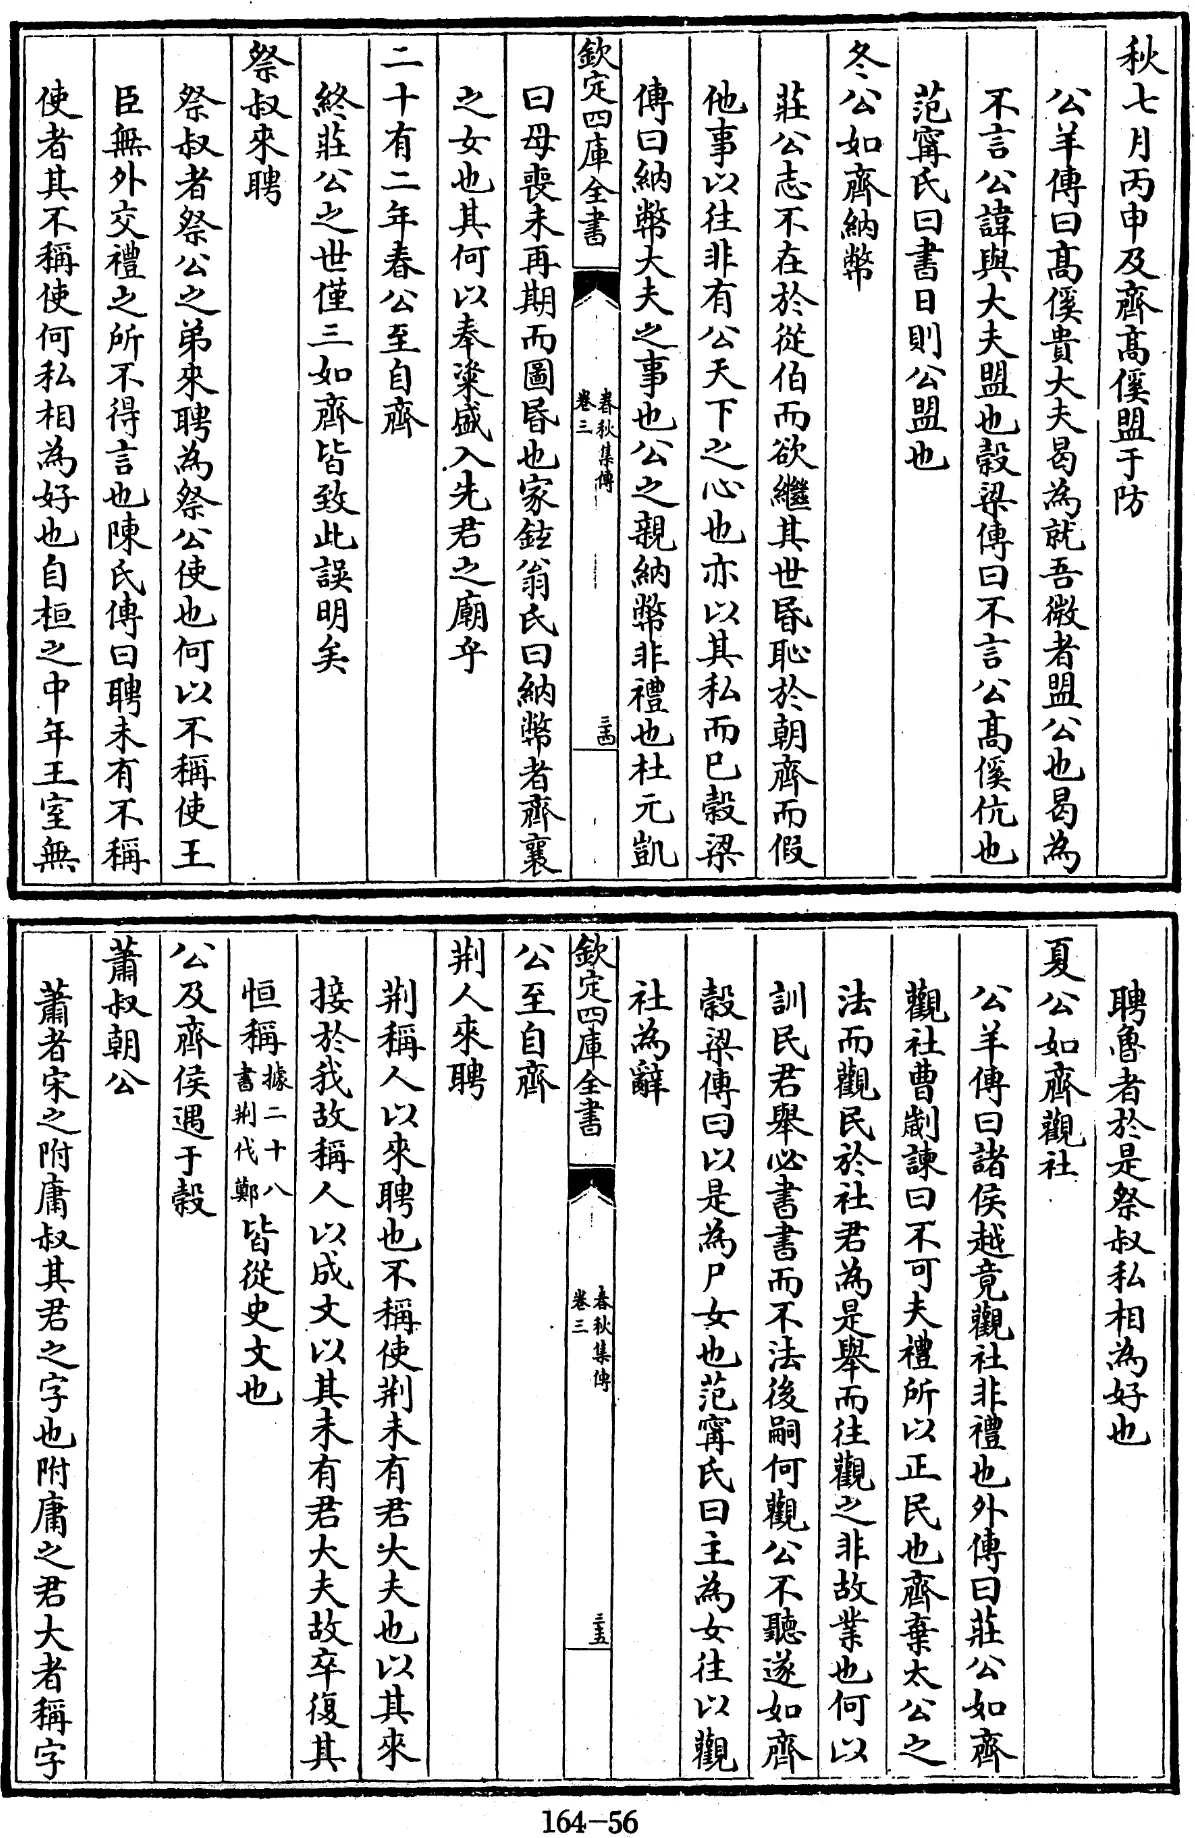 秋七月丙申及齊髙傒盟于防
公羊傳曰髙傒貴大夫曷為就吾微者盟公也曷為
不言公諱與大夫盟也穀梁傳曰不言公髙傒伉也
范寗氏曰書日則公盟也
冬公如齊納幣
莊公志不在於從伯而欲繼其世昏恥於朝齊而假
他事以往非有公天下之心也亦以其私而已穀梁
傳曰納幣大夫之事也公之親納幣非禮也杜元凱
欽定四庫全書
春秋集傳
卷三
三四
曰母喪未再期而圖昏也家鉉翁氏曰納幣者齊襄
之女也其何以奉粢盛入先君之廟乎
二十有二年春公至自齊
終莊公之世僅三如齊皆致此誤明矣
祭叔來聘
祭叔者祭公之弟來聘為祭公使也何以不稱使王
臣無外交禮之所不得言也陳氏傳曰聘未有不稱
使者其不稱使何私相為好也自桓之中年王室無
聘魯者於是祭叔私相為好也
夏公如齊觀社
公羊傳曰諸侯越竟觀社非禮也外傳曰莊公如齊
觀社曹劌諫曰不可夫禮所以正民也齊棄太公之
法而觀民於社君為是舉而往觀之非故業也何以
訓民君舉必書書而不法後嗣何觀公不聽遂如齊
穀梁傳曰以是為尸女也范寗氏曰主為女往以觀
社為辭
欽定四庫全書
春秋集傳
卷三
三五
公至自齊
荆人來聘
荆稱人以來聘也不稱使荆未有君大夫也以其來
接於我故稱人以成文以其未有君大夫故卒復其
恒稱據二十八書荆伐鄭皆從史文也
公及齊侯遇于穀
蕭叔朝公
蕭者宋之附庸叔其君之字也附庸之君大者稱字
164-56